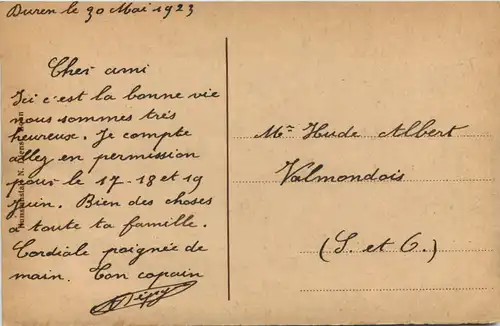 Duren le 30 Mai 1923
Cher ami
Ici c'est la bonne vie
nous sommes très
heureux. Je compte
allez en permission
pour le 17-18 et 19
Juin. Bien des choses
à toute ta famille.
Cordiale poignée de
main. Ton copain
Mr Hude Albert
Valmondois
(S. et O.)